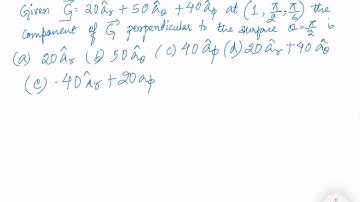 Given G⃗ = 20 âr + 50 âθ + 40 âφ at (1, π/2, π/6) the
component of G⃗ perpendicular to the surface θ = π/2 is
(a) 20 âr (b) 50 âθ (c) 40 âφ (d) 20 âr + 40 âθ
(e) -40 âr + 20 aφ